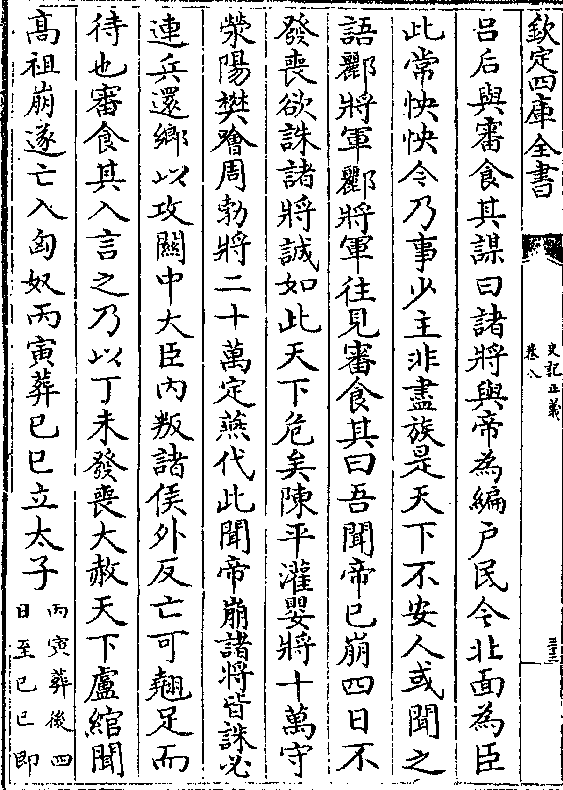 欽定四庫全書
史記正義
卷八
三十三
呂后與審食其謀曰諸將與帝為編戶民今北面為臣
此常怏怏今乃事少主非盡族是天下不安人或聞之
語酈將軍酈將軍往見審食其曰吾聞帝已崩四日不
發喪欲誅諸將誠如此天下危矣陳平灌嬰將十萬守
滎陽樊噲周勃將二十萬定燕代此聞帝崩諸將皆誅必
連兵還鄉以攻關中大臣內叛諸侯外反亡可翹足而
待也審食其入言之乃以丁未發喪大赦天下盧綰聞
高祖崩遂亡入匈奴丙寅葬己巳立太子
丙寅葬後四
日至己巳即